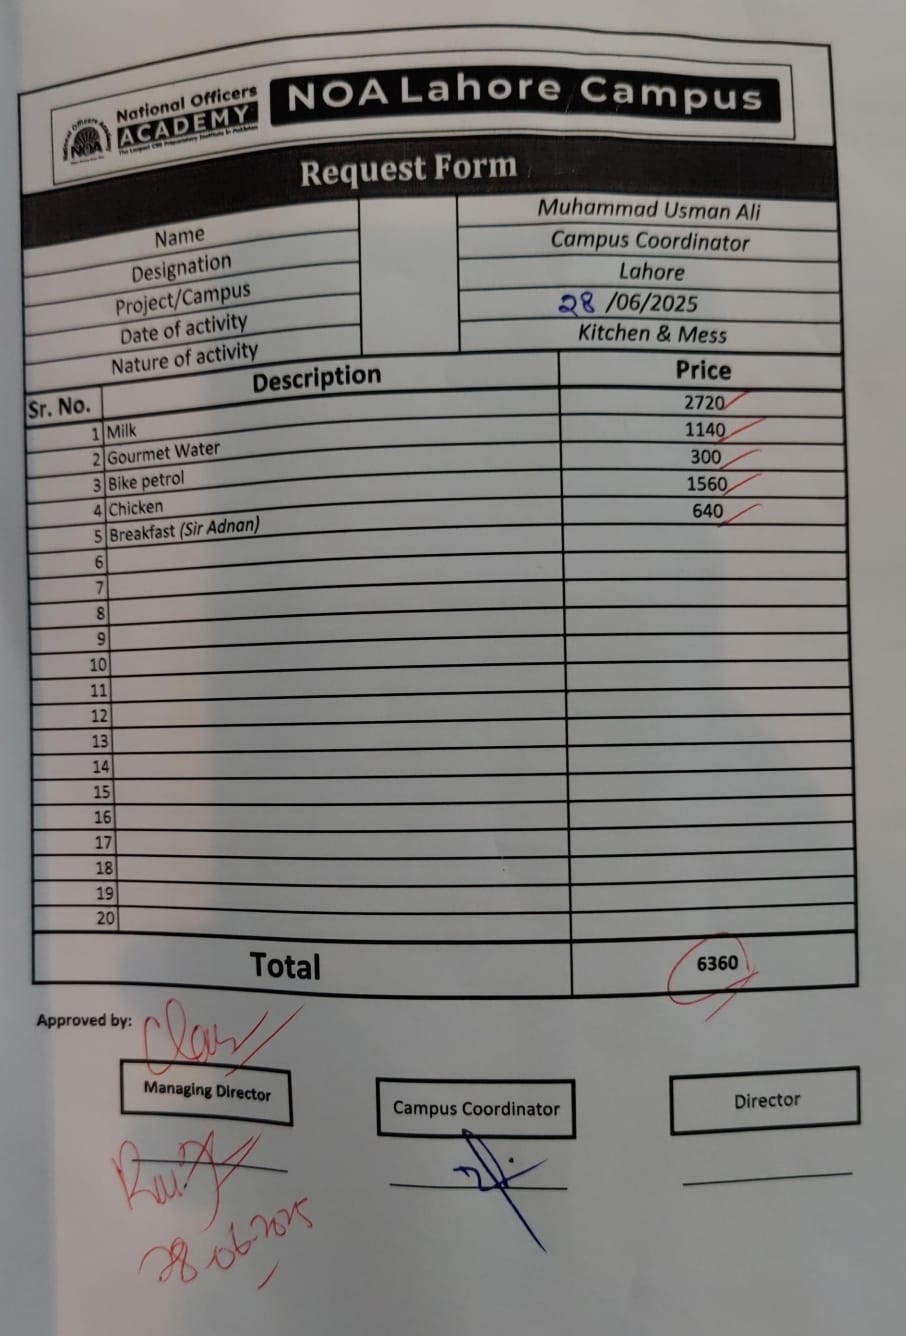 National Officers
ACADEMY
The Largest CSS Preparatory Institute in Pakistan
NOA
NOA Lahore Campus
Request Form
Name Muhammad Usman Ali
Designation Campus Coordinator
Project/Campus Lahore
Date of activity 28 /06/2025
Nature of activity Kitchen & Mess
Sr. No. Description Price
1 Milk 2720
2 Gourmet Water 1140
3 Bike petrol 300
4 Chicken 1560
5 Breakfast (Sir Adnan) 640
6
7
8
9
10
11
12
13
14
15
16
17
18
19
20
Total 6360
Approved by:
Managing Director Campus Coordinator Director
28-06-2025